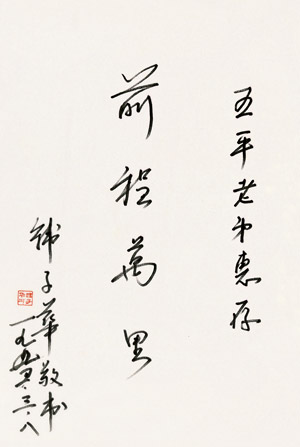 五平老弟惠存
前程萬里
钱子華敬书
一九九〇.三.八